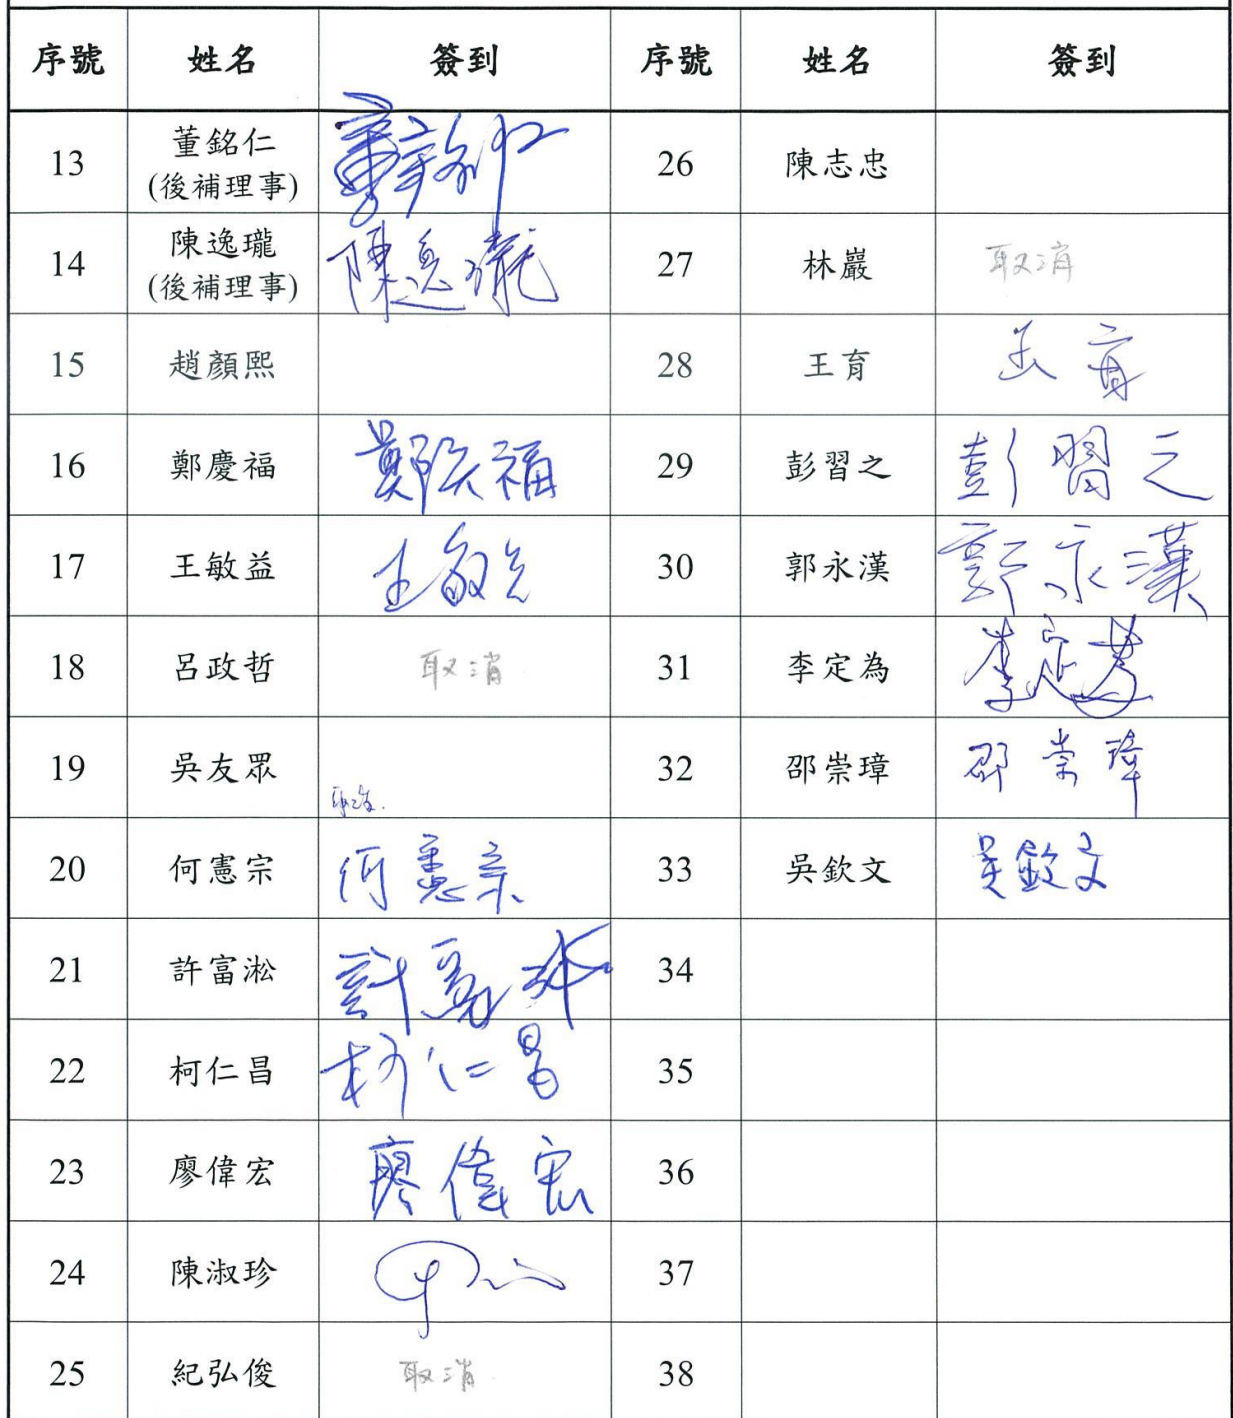 序號 姓名 簽到 序號 姓名 簽到
13 董銘仁 (後補理事) 董銘仁 26 陳志忠
14 陳逸瓏 (後補理事) 陳逸瓏 27 林巖 取消
15 趙顏熙 28 王育 王育
16 鄭慶福 鄭慶福 29 彭習之 彭習之
17 王敏益 王敏益 30 郭永漢 郭永漢
18 呂政哲 取消 31 李定為 李定為
19 吳友眾 取消. 32 邵崇璋 邵崇璋
20 何憲宗 何憲宗 33 吳欽文 吳欽文
21 許富淞 許富淞 34
22 柯仁昌 柯仁昌 35
23 廖偉宏 廖偉宏 36
24 陳淑珍 37
25 紀弘俊 取消 38